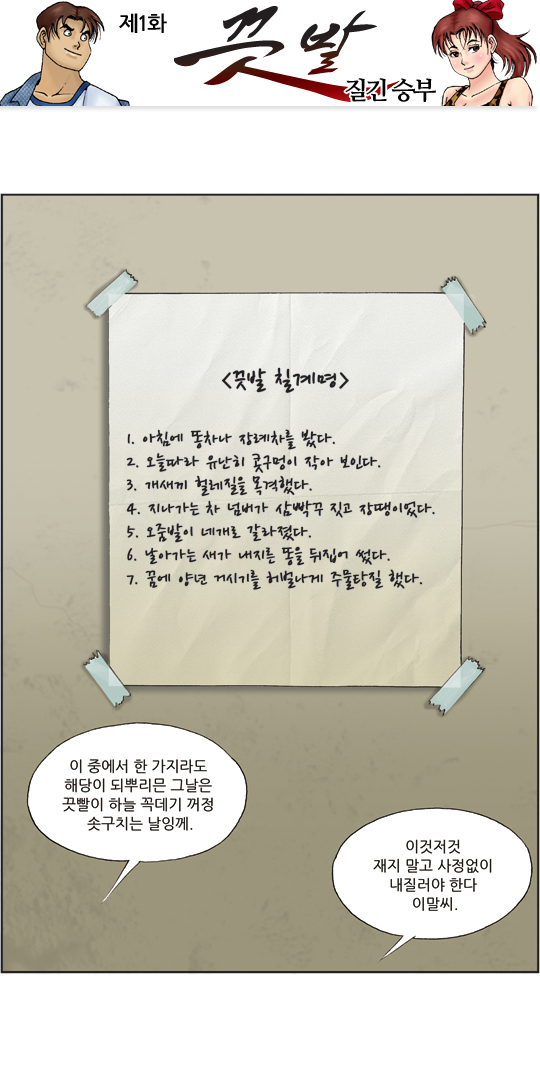 제1화
끗발
질긴 승부
<끗발 칠계명>
1. 아침에 똥차나 장례차를 봤다.
2. 오늘따라 유난히 콧구멍이 작아 보인다.
3. 개새끼 헐레질을 목격했다.
4. 지나가는 차 넘버가 삼빡꾸 짓고 장땡이었다.
5. 오줌발이 네개로 갈라졌다.
6. 날아가는 새가 내지른 똥을 뒤집어 썼다.
7. 꿈에 양년 거시기를 허벌나게 주물탕질 했다.
이 중에서 한 가지라도
해당이 되뿌리믄 그날은
끗빨이 하늘 꼭데기 꺼정
솟구치는 날잉께.
이것저것
재지 말고 사정없이
내질러야 한다
이말씨.